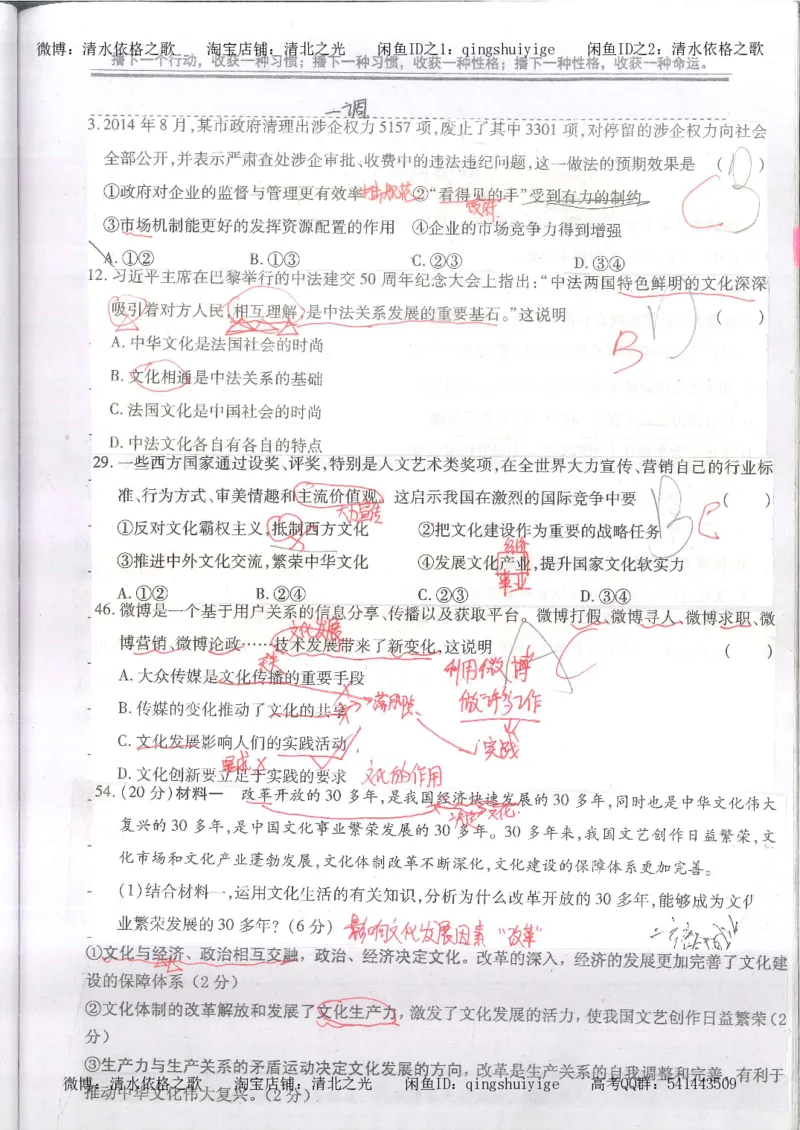 微博：清水依格之歌 淘宝店铺：清北之光 闲鱼ID之1：qingshuiyige 闲鱼ID之2：清水依格之歌
播下一个行动，收获一种习惯；播下一种习惯，收获一种性格；播下一种性格，收获一种命运。
二调
3.2014年8月,某市政府清理出涉企权力5157项,废止了其中3301项,对停留的涉企权力向社会
全部公开,并表示严肃查处涉企审批、收费中的违法违纪问题,这一做法的预期效果是 ( )
B
C
①政府对企业的监督与管理更有效率 ②“看得见的手”受到有力的制约
政府
③市场机制能更好的发挥资源配置的作用 ④企业的市场竞争力得到增强
A.①② B.①③ C.②③ D.③④
12.习近平主席在巴黎举行的中法建交50周年纪念大会上指出:“中法两国特色鲜明的文化深深
吸引着对方人民,相互理解,是中法关系发展的重要基石。”这说明 ( )
B
A.中华文化是法国社会的时尚
B.文化相通是中法关系的基础
C.法国文化是中国社会的时尚
D.中法文化各自有各自的特点
29.一些西方国家通过设奖、评奖,特别是人文艺术类奖项,在全世界大力宣传、营销自己的行业标
准、行为方式、审美情趣和主流价值观。这启示我国在激烈的国际竞争中要 ( )
大力宣传
B C
①反对文化霸权主义,抵制西方文化 ②把文化建设作为重要的战略任务
经济
③推进中外文化交流,繁荣中华文化 ④发展文化产业,提升国家文化软实力
事业
A.①② B.②④ C.②③ D.③④
46.微博是一个基于用户关系的信息分享、传播以及获取平台。微博打假、微博寻人、微博求职、微
文化发展
博营销、微博论政……技术发展带来了新变化,这说明 ( )
A C
A.大众传媒是文化传播的重要手段
利用微博
B.传媒的变化推动了文化的共享
做许多工作
C.文化发展影响人们的实践活动
实践
D.文化创新要立足于实践的要求
文化的作用
54.(20分)材料一 改革开放的30多年,是我国经济快速发展的30多年,同时也是中华文化伟大
决定文化
复兴的30多年,是中国文化事业繁荣发展的30多年。30多年来,我国文艺创作日益繁荣,文
化市场和文化产业蓬勃发展,文化体制改革不断深化,文化建设的保障体系更加完善。
(1)结合材料一,运用文化生活的有关知识,分析为什么改革开放的30多年,能够成为文化
业繁荣发展的30多年?(6分)
影响文化发展因素 “改革”
①文化与经济、政治相互交融，政治、经济决定文化。改革的深入，经济的发展更加完善了文化建
设的保障体系（2分）
②文化体制的改革解放和发展了文化生产力，激发了文化发展的活力，使我国文艺创作日益繁荣（2
分）
③生产力与生产关系的矛盾运动决定文化发展的方向，改革是生产关系的自我调整和完善，有利于
推动中华文化伟大复兴。（2分）
微博：清水依格之歌 淘宝店铺：清北之光 闲鱼ID：qingshuiyige 高考QQ群：541443509